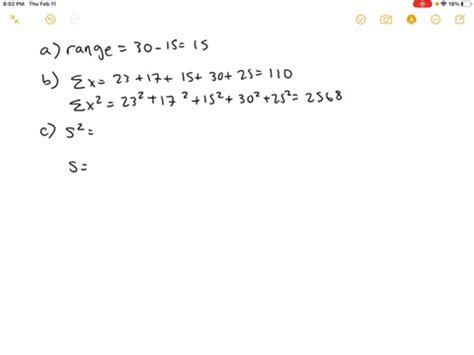 8:02 PM Thu Feb 11
18%
a) range = 30 - 15 = 15
b) Σx = 23 + 17 + 15 + 30 + 25 = 110
Σx² = 23² + 17² + 15² + 30² + 25² = 2568
c) s² =
s =